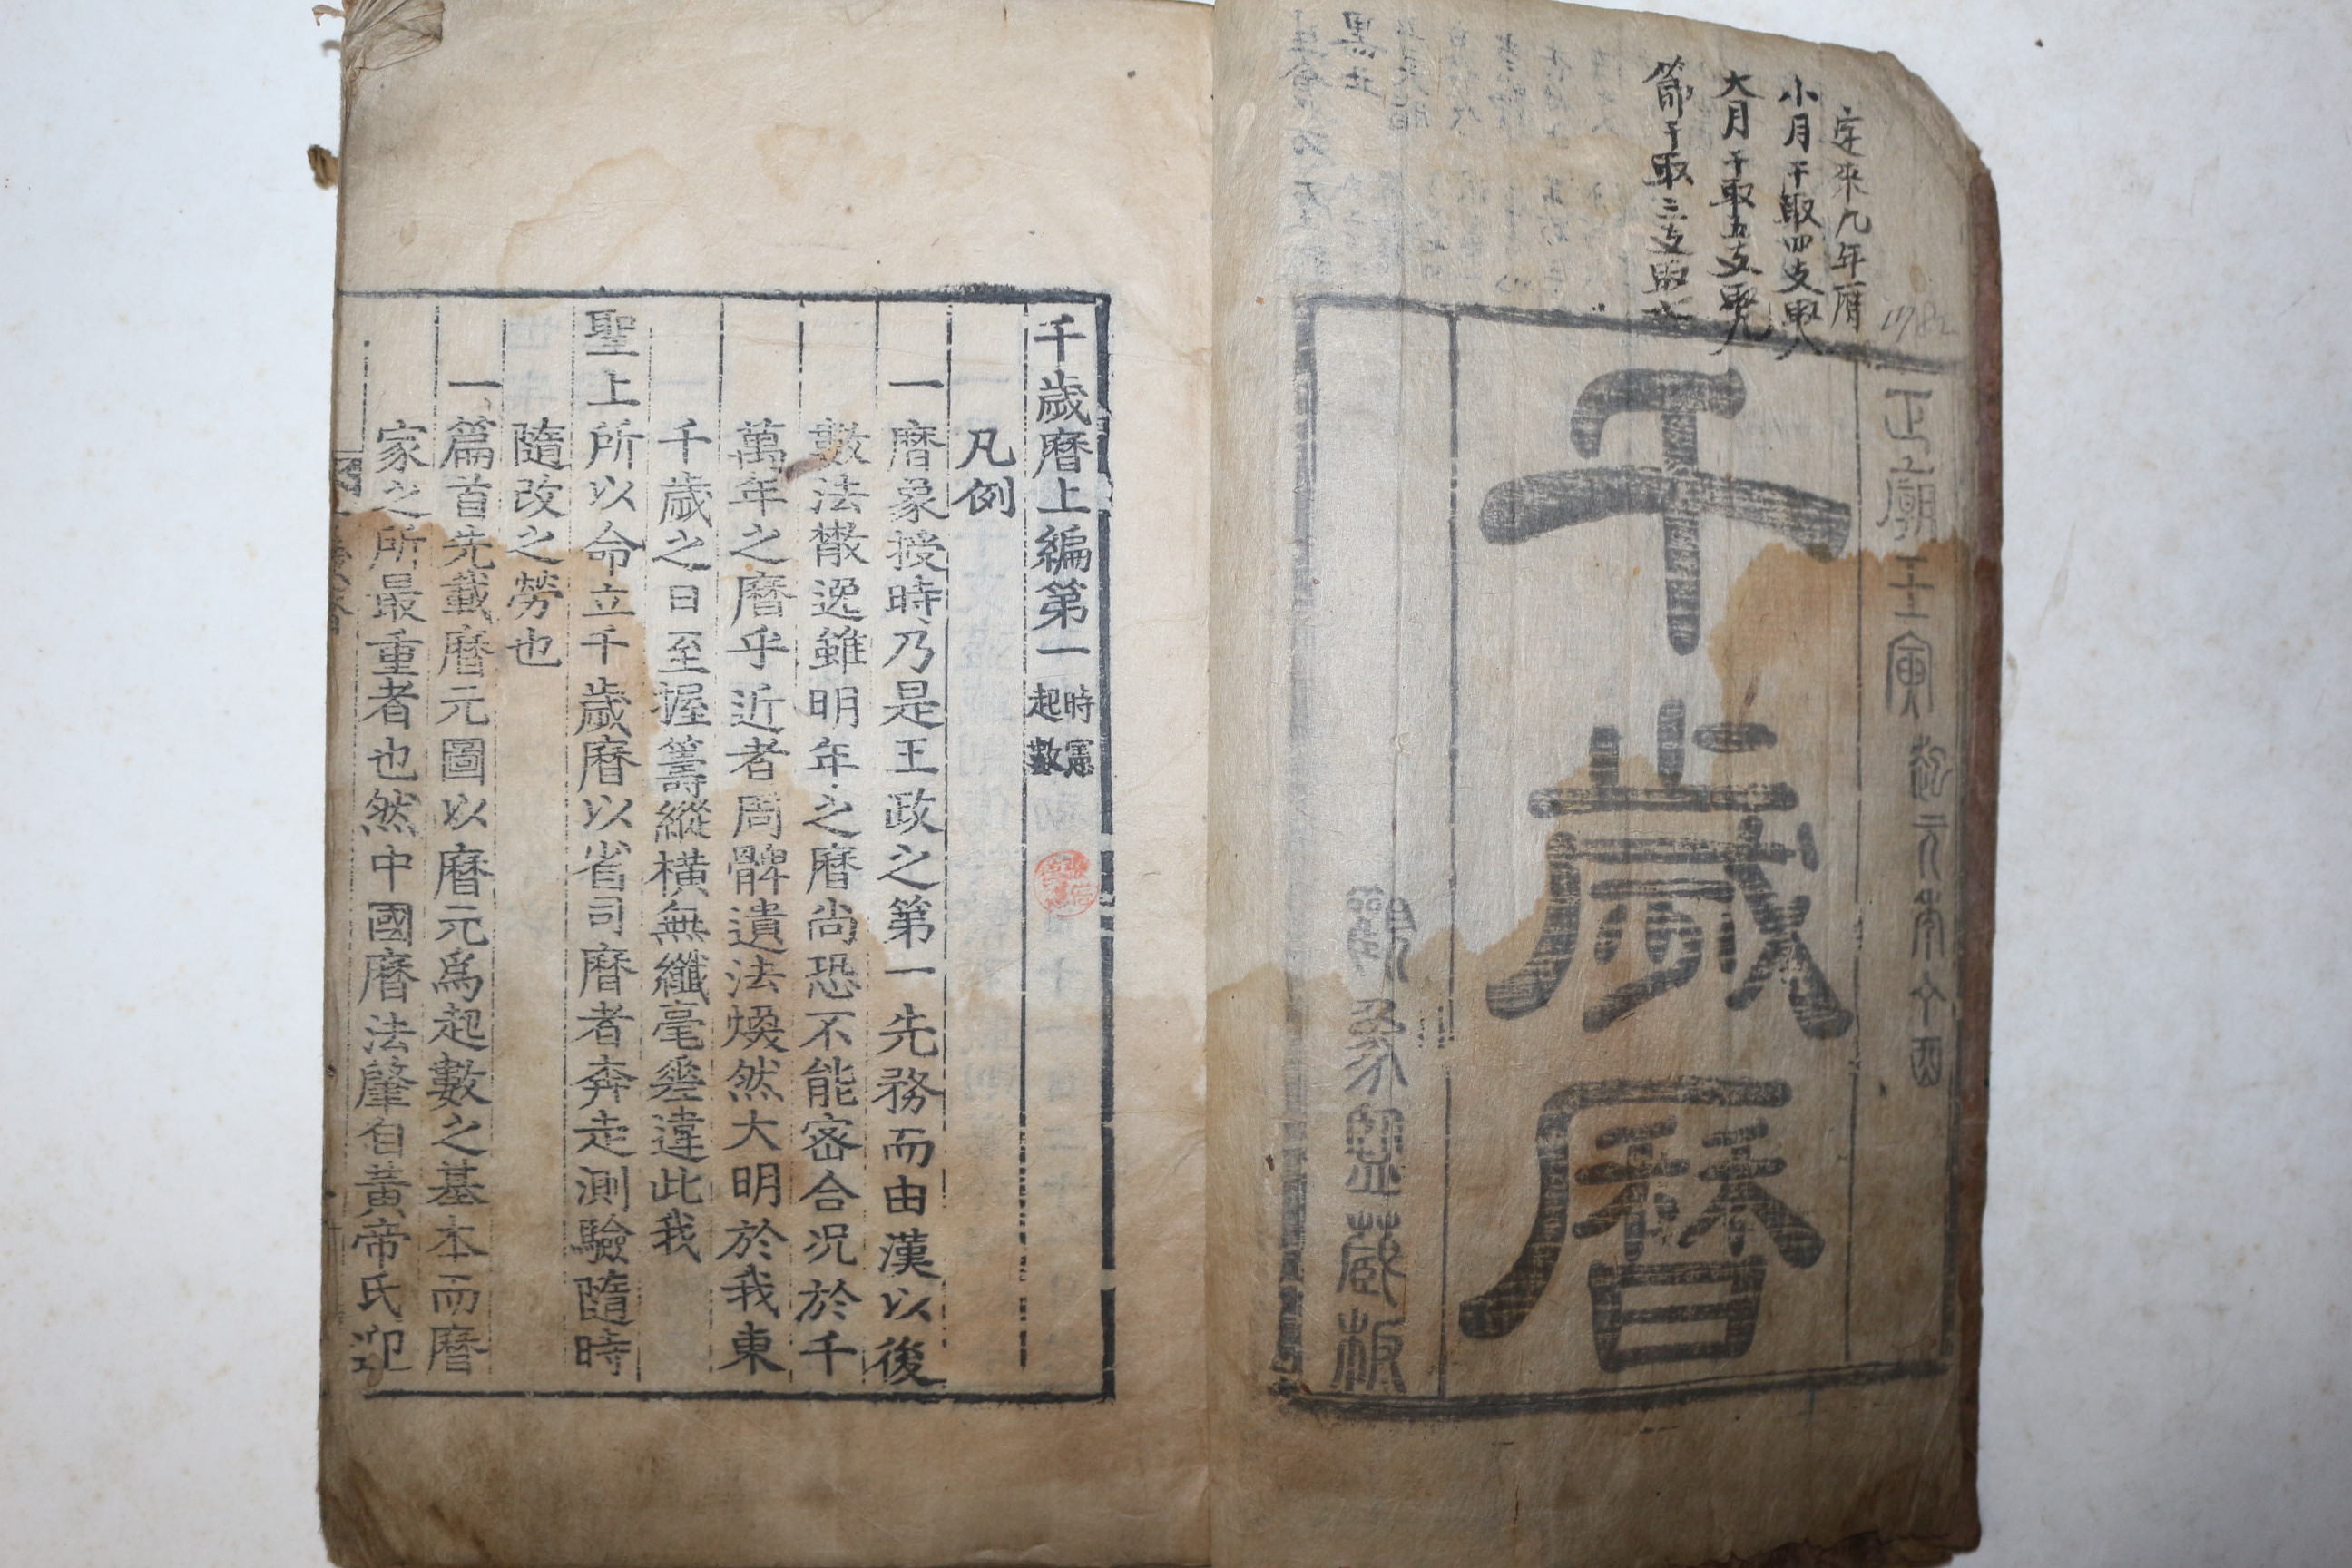 定來九年曆
小月干取四支取八
大月干取五支取九
節干取三支取七
1782
正廟壬寅
千歲曆
觀象監藏板
黑土
千歲曆上編第一 時憲起數
凡例
一曆象授時乃是王政之第一先務而由漢以後
數法散逸雖明年之曆尚恐不能密合況於千
萬年之曆乎近者周髀遺法煥然大明於我東
千歲之日至握籌縱橫無纖毫差違此我
聖上所以命立千歲曆以省司曆者奔走測驗隨時
隨改之勞也
一篇首先載曆元圖以曆元爲起數之基本而曆
家之所最重者也然中國曆法肇自黃帝氏迎